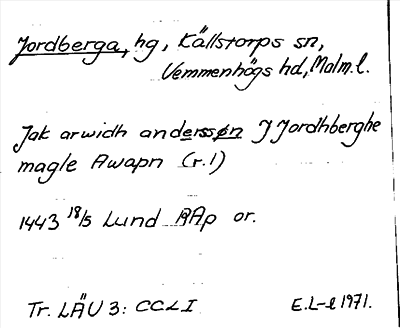 Jordberga, hg, Källstorps sn,
Vemmenhögs hd, Malm.l.
Jak arwidh anderssøn J Jordhberghe
magle Awapn (r.1)
1443 18/5 Lund RAp or.
Tr. LÄU 3: CCLI E.L-l 1971.